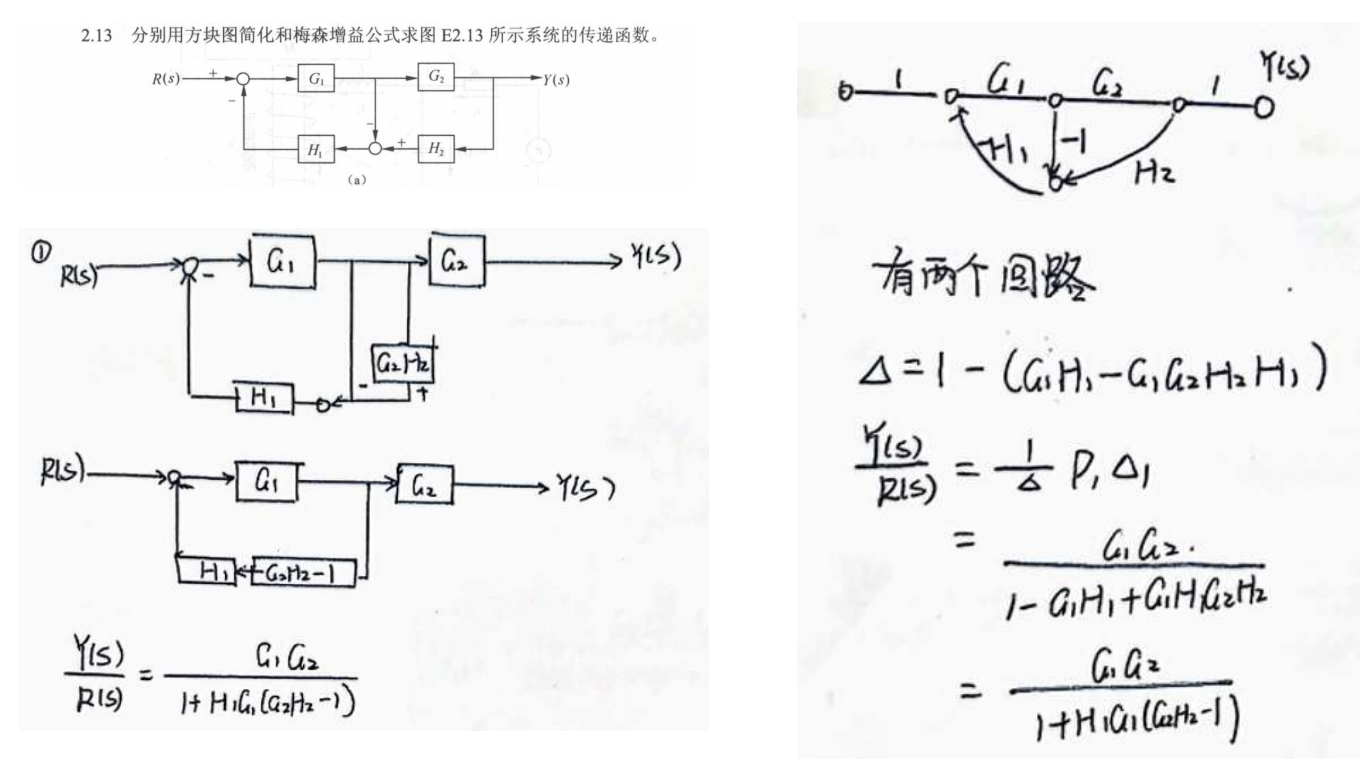 2.13 分别用方块图简化和梅森增益公式求图 E2.13 所示系统的传递函数。
R(s) + G₁ G₂ Y(s)
- - +
H₁ H₂
(a)
① R(s) - G₁ G₂ Y(s)
G₂H₂
H₁ - +
R(s) - G₁ G₂ Y(s)
H₁ G₂H₂-1
Y(s)/R(s) = G₁G₂/(1+H₁G₁(G₂H₂-1))
1 G₁ G₂ 1 Y(s)
-H₁ -1 H₂
有两个回路
Δ=1-(G₁H₁-G₁G₂H₂H₁)
Y(s)/R(s) = 1/Δ P₁Δ₁
= G₁G₂./(1-G₁H₁+G₁H₁G₂H₂)
= G₁G₂/(1+H₁G₁(G₂H₂-1))